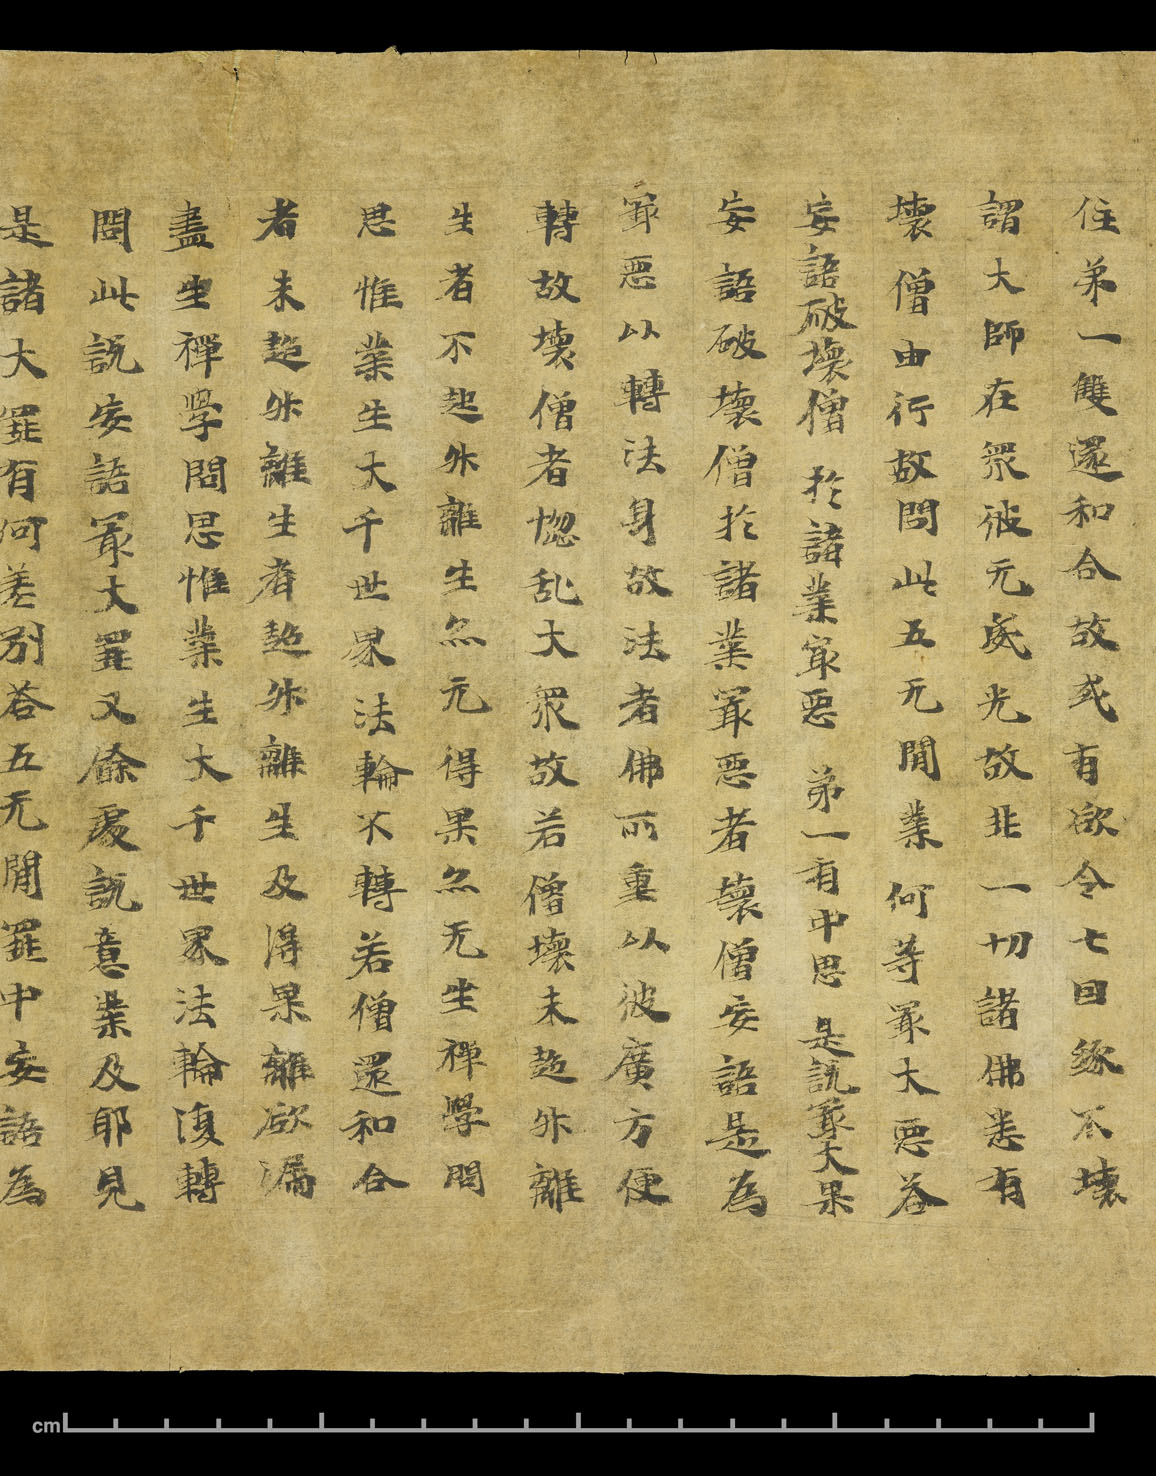 住苐一雙還和合故或有欲令七因緣不壞
謂大師在衆彼无威光故非一切諸佛悉有
壞僧由行故問此五无間業何等冣大惡荅
妄語破壞僧 於諸業冣惡 苐一有中思 是說冣大果
妄語破壞僧於諸業冣惡者壞僧妄語是為
冣惡以轉法身故法者佛所重以彼廣方便
轉故壞僧者惚乱大衆故若僧壞未起升離
生者不起升離生亦无得果亦无生禪學問
思惟業生大千世界法輪不轉若僧還和合
者未起升離生者起升離生及得果離欲漏
盡生禪學問思惟業生大千世界法輪復轉
問此說妄語冣大罪又餘處說意業及耶見
是諸大罪有何差別荅五无間罪中妄語為